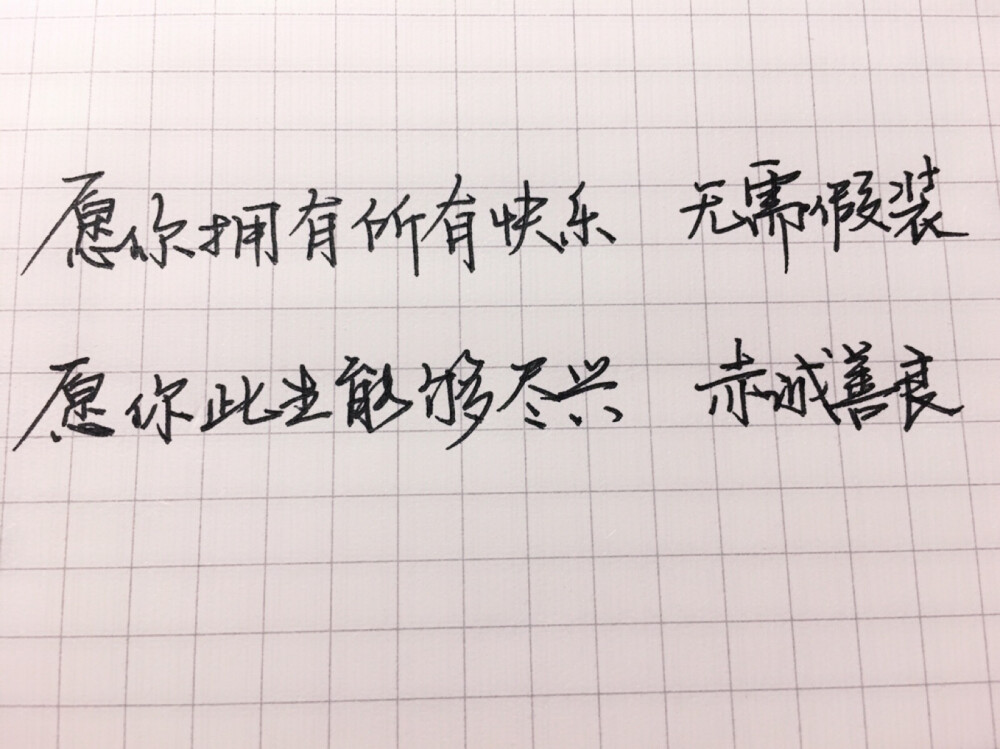 愿你拥有所有快乐 无需假装
愿你此生能够尽兴 赤诚善良